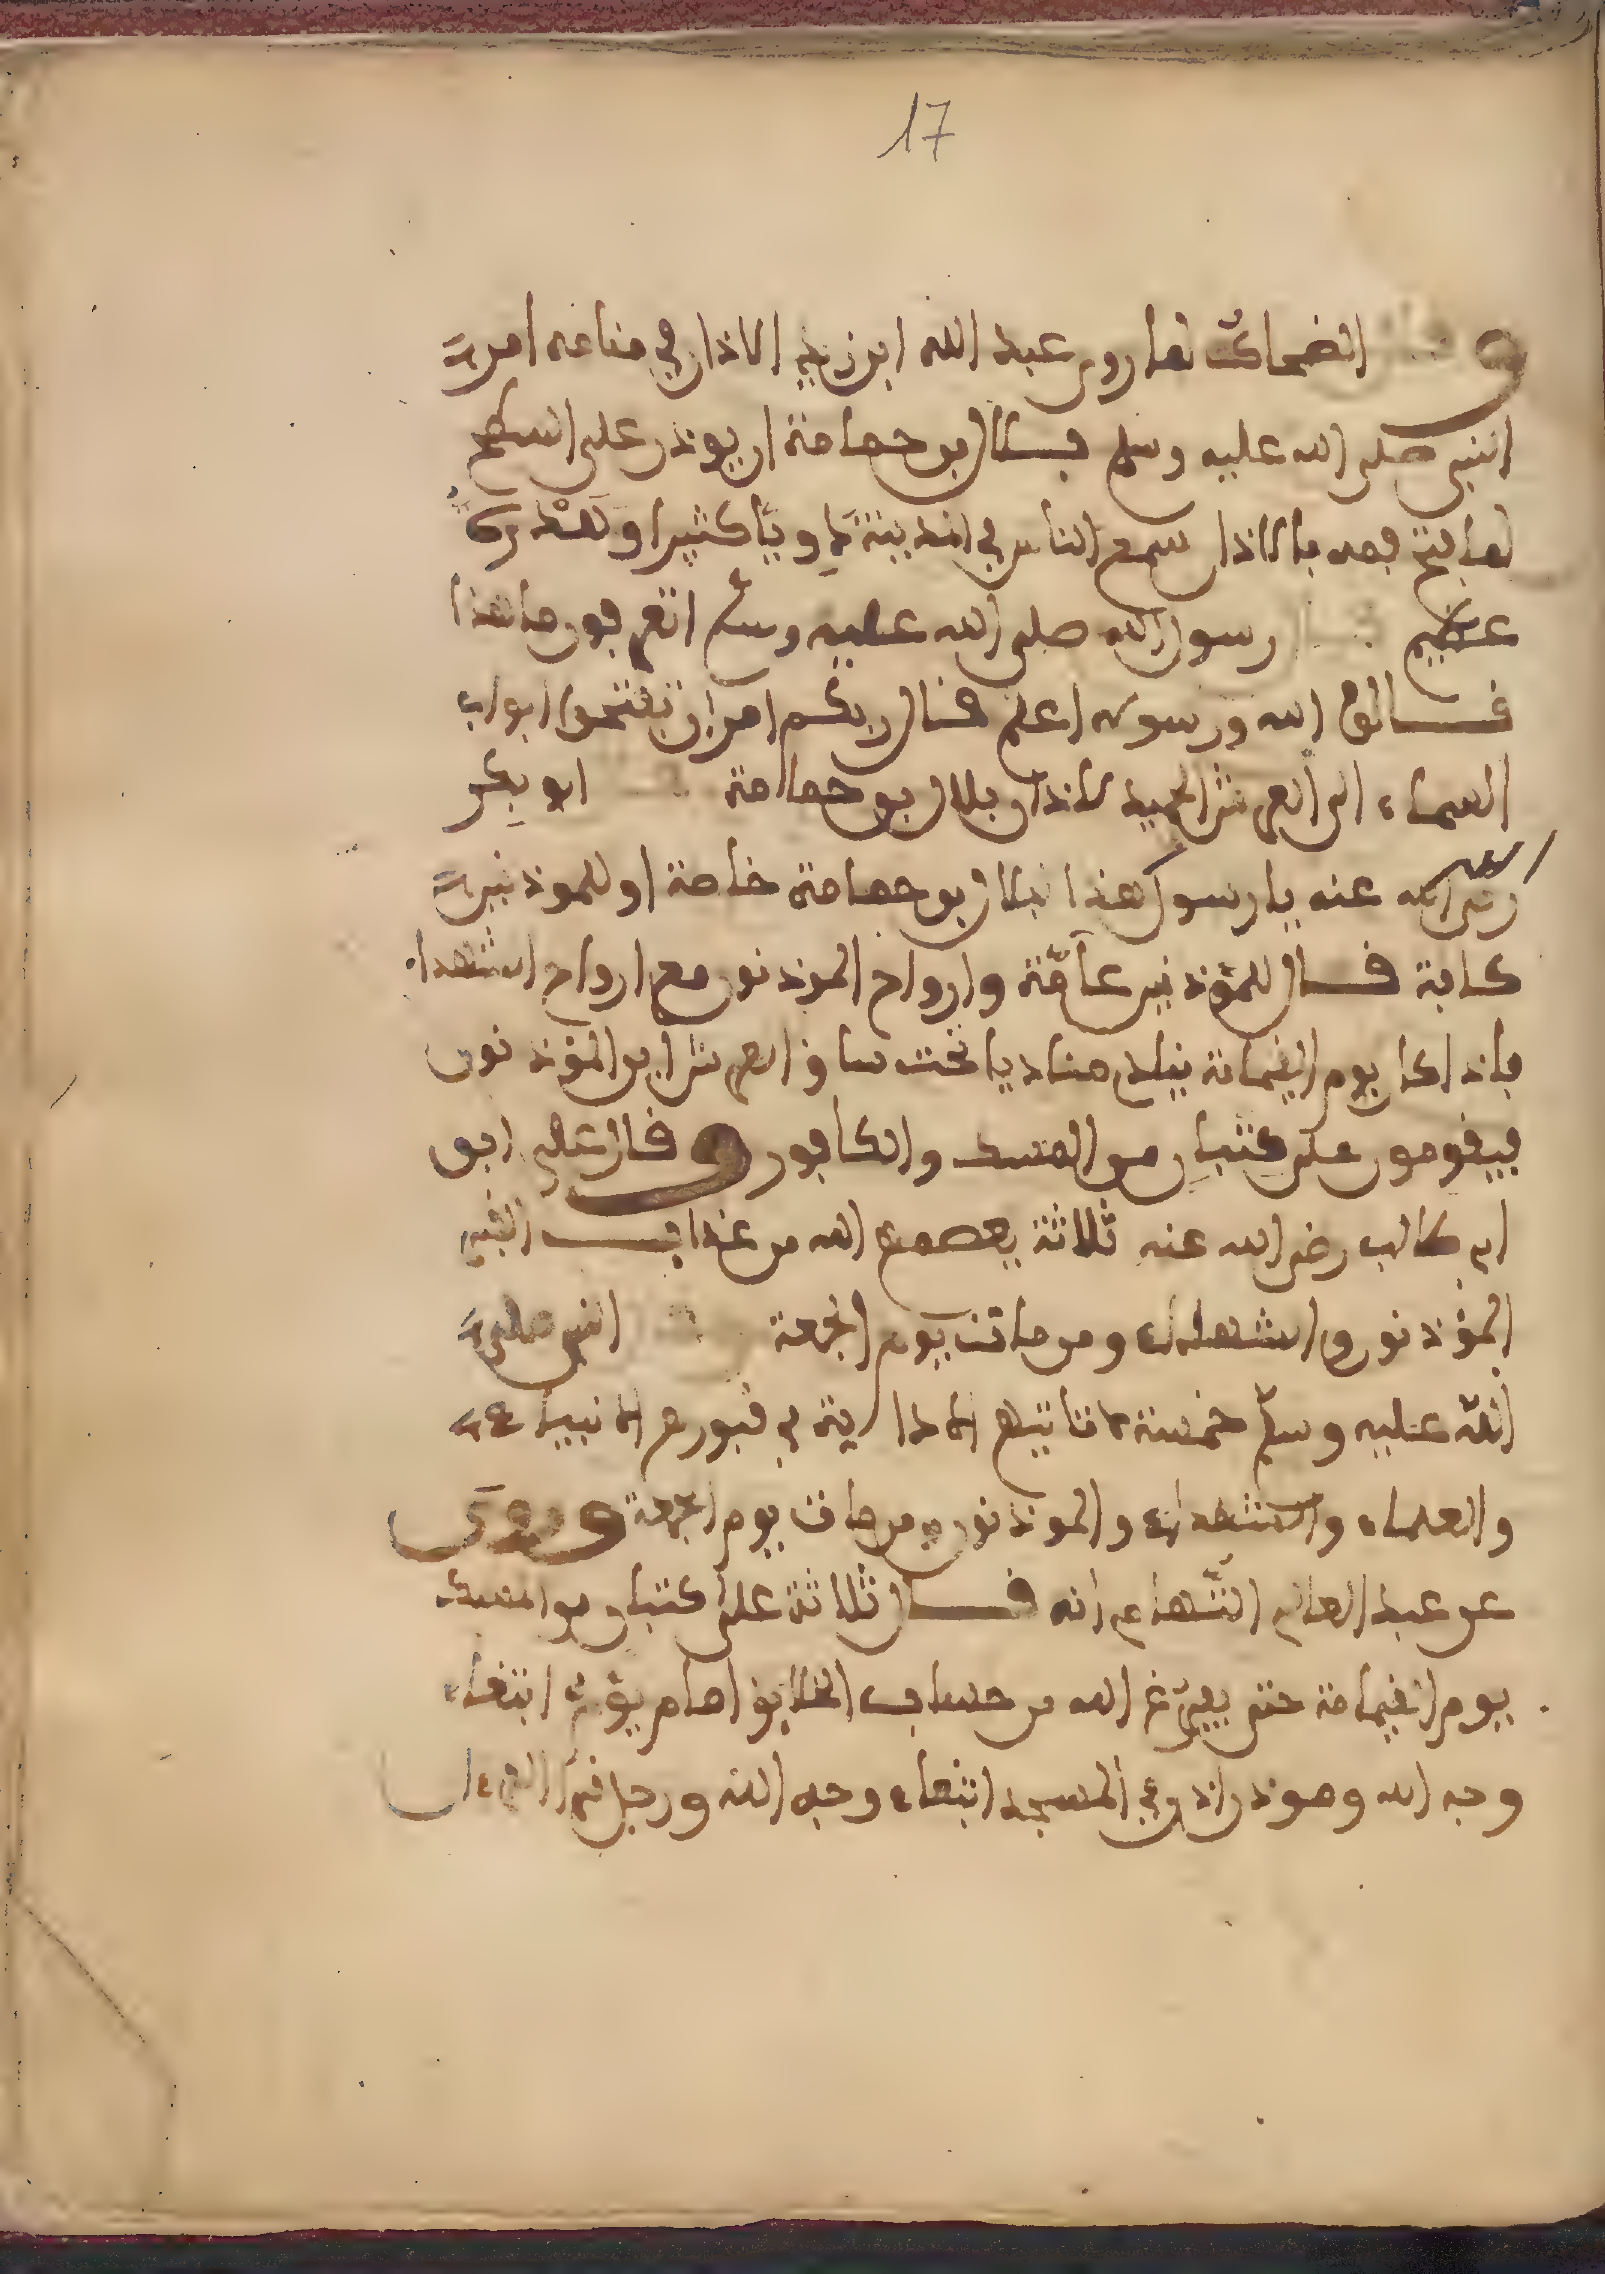 17
وقال الضحاك لما روى عبد الله ابن زيد الاذان في منامه امر
النبي صلى الله عليه وسلم بلال بن حمامة ان يوذن على السطح
لما افتتح بالاذان سمع الناس في المدينة دويا كثيرا و
عظيم رسول الله صلى الله عليه وسلم اتعرفون ما هذا
فالوا الله ورسوله اعلم فال ربكم امر ان تفتحوا ابواب
السماء الى العرش الحميد لاذان بلال بن حمامة ابو بكر
رضي الله عنه يا رسول الله هذا لبلال بن حمامة خاصة او للموذنين
كافة فال للمؤذنين عامّة وارواح الموذنون مع ارواح الشهداء
فاذا كان يوم القيامة ينادي مناديا تحت ساق العرش اين المؤذنون
فيقومون على كثبان من المسك والكافور وفال علي ابن
ابي طالب رضي الله عنه ثلاثة يعصمهم الله من عذاب القبر
المؤذنون والشهداء ومن مات يوم الجمعة النبي صلى
الله عليه وسلّم خمسة لا تاتيهم الاذاية في قبورهم الانبياء
والعلماء والشهداء والموذنون ومن مات يوم الجمعة وروى
عن عبد العالي انه فال ثلاثة على كثبان من المسك
يوم القيامة حتى يفرّغ الله من حساب الخلايق امام يؤم ابتغاء
وجه الله وموذن اذن في المسجد ابتغاء وجه الله ورجل قرأ القرءان